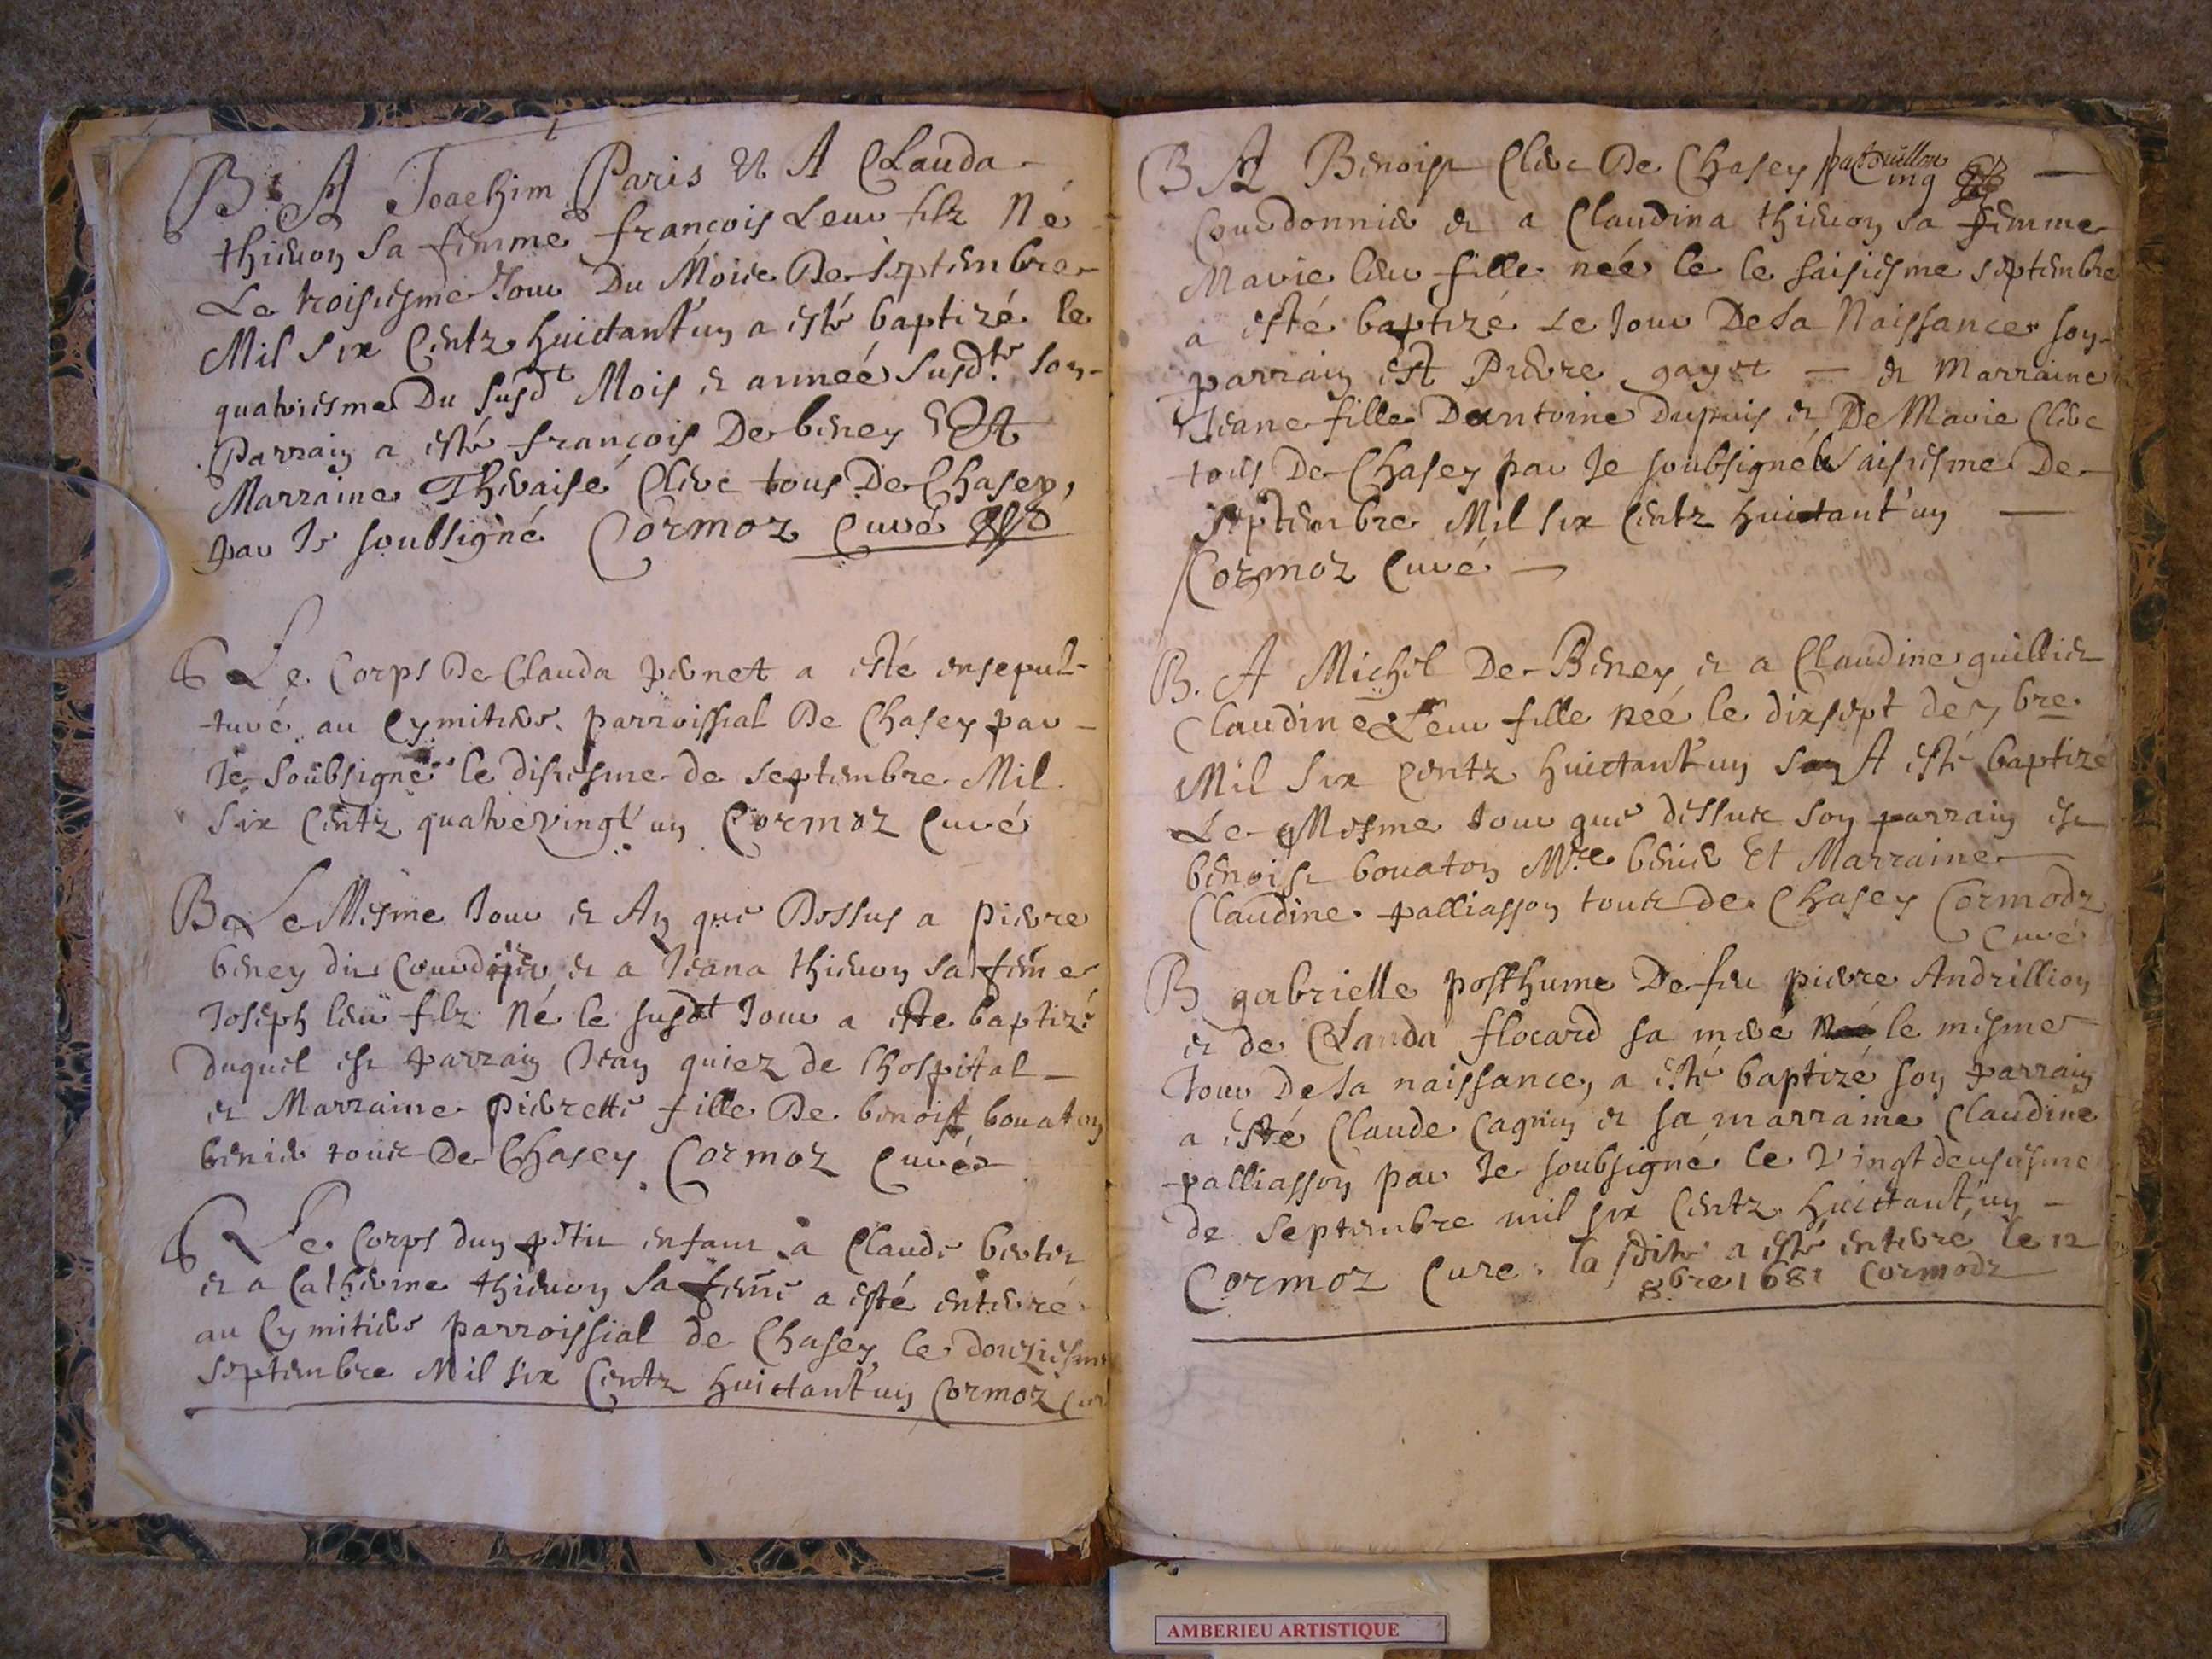 B A Joachim Paris et A Clauda
thieuon sa femme françois Leur filz Né
Le troisiesme Jour Du Moise De septembre
Mil six Centz huictant'un a esté baptizé le
quatriesme Du susdt Mois et annéé susdte son
Parrain a esté françois De beney Et
Marraine Thevaise Clerc tous De Chasey,
par Je soubsigné Cormoz Curé
Le Corps De Clauda pernet a esté ensepul-
turé au Cymitiere parroissial De Chasey par
Je Soubsigné le disiesme de septembre Mil
six Centz quatrevingt'un Cormoz Curé
B Le Mesme Jour et An que Dessus a pierre
beney dit et a Jeana thieuon sa feme
Joseph leur filz Né le susdt Jour a este baptizé
duquel est parrain Jean quiez de lhospital
et Marraine pierrette fille De benoist bouaton
benier tout De Chasey Cormoz Curé
Le Corps dun petit enfant a Claude bertet
et a Catherine thieuon sa feme a esté enterré
au Cymitiere parroissial de Chasey le douziesme
septembre Mil six Centz huictant'un Cormoz Curé
B A Benoist Clerc De Chasey
Courdonnier et a Claudina thieuon sa femme
Marie leur fille néé le le saisiesme septembre
a esté baptizé Le Jour De sa Naissance son
parrain est Pierre gayet et Marraine
Jeane fille Dantoine Dupuis et De Marie Clerc
tous De Chasey par Je soubsigné le saisiesme De
septembre Mil six Centz huictant'un
Cormoz Curé
B. A Michel De Beney et a Claudine guilliet
Claudine Leur fille néé le dixsept de 7bre
Mil six Centz huictant'un son A esté baptizé
Le Mesme Jour que dessus son parrain est
benoist bouaton Mre benier Et Marraine
Claudine palliasson tout de Chasey Cormodz
Curé
B gabrielle posthume De feu pierre Andrillion
et de Clauda flocard sa mere Néé le mesme
Jour De sa naissance, a esté baptizé son parrain
a esté Claude Cagnin et sa marraine Claudine
palliasson par Je soubsigné le vingt deusiesme
de Septembre mil six Centz huictant'un
Cormoz Cure. la sdite a esté enterré le 12
8bre 1681 Cormodz
AMBERIEU ARTISTIQUE